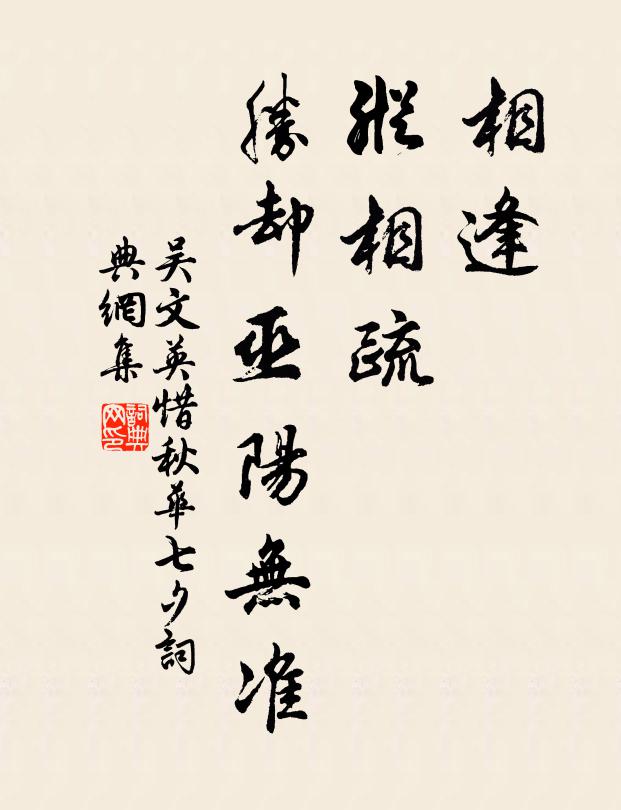 相逢
縱相疏
勝却巫陽無准
吴文英惜秋華七夕詞
典網集
詞典网印